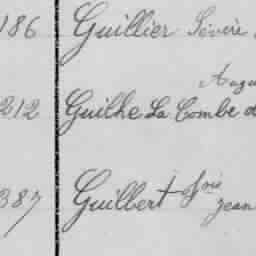 186 Guillier Sévère
212 Guilhe La Combe d
387 Guilbert
Jean